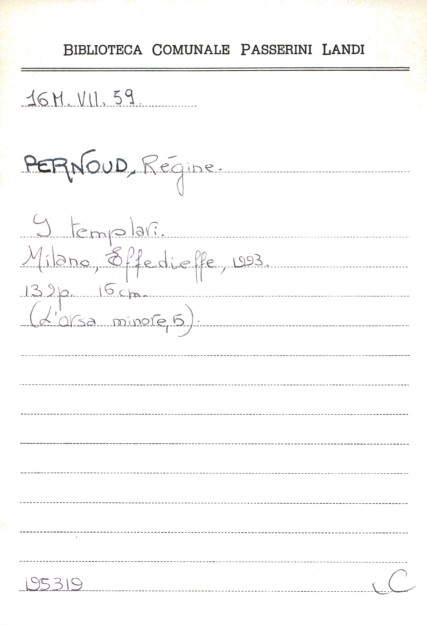 BIBLIOTECA COMUNALE PASSERINI LANDI
16M. VII. 59.
PERNOUD, Régine.
I templari.
Milano, Effedieffe, 1993.
139p. 16cm.
(L'orsa minore, 5).
195319 C